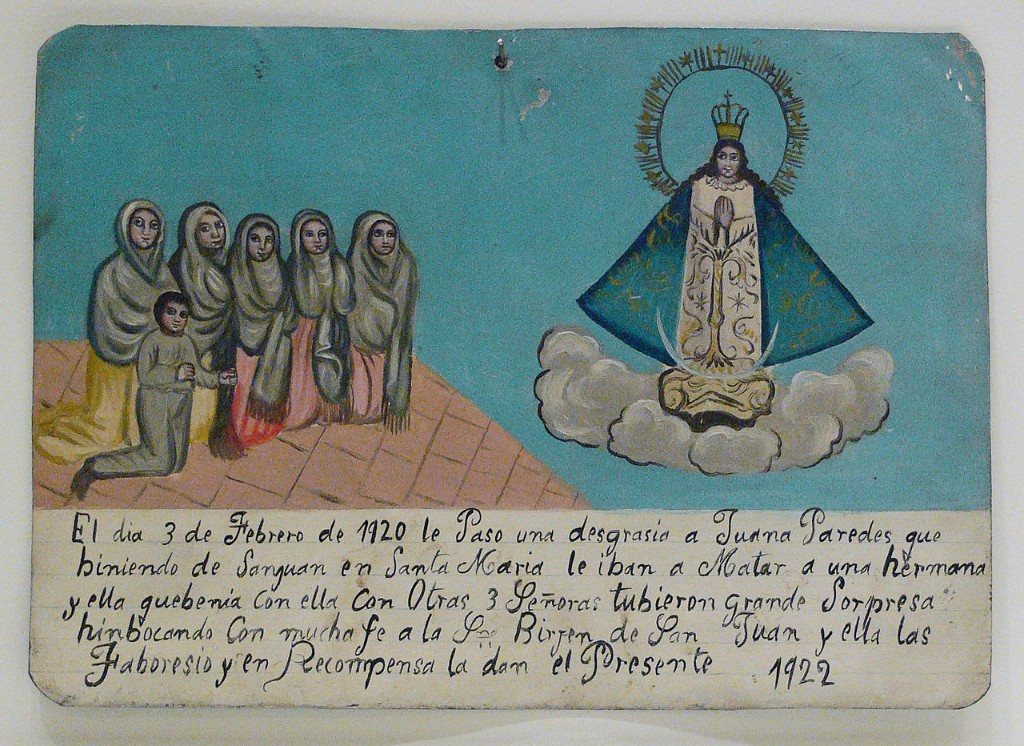 El dia 3 de Febrero de 1920 le Paso una desgrasia a Juana Paredes que
biniendo de Sanjuan en Santa Maria le iban a Matar a una hermana
y ella quebenia con ella con Otras 3 Señoras tubieron grande Sorpresa
hinbocando Con mucha fe a la Sra Birjen de San Juan y ella las
Faboresio y en Recompensa la dan el Presente 1922